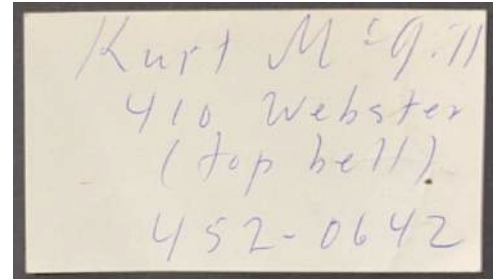 Kurt McGill
410 Webster
(top bell)
452-0642